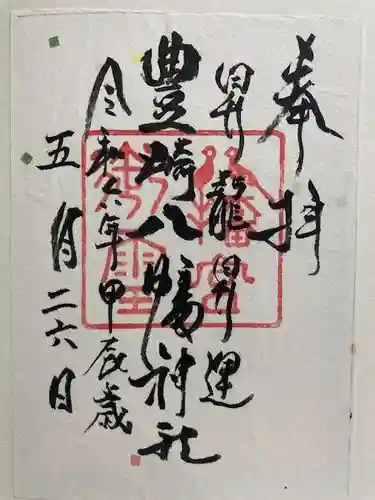 奉拝
昇龍昇運
豊崎八幡神社
令和六年甲辰歳
五月二六日